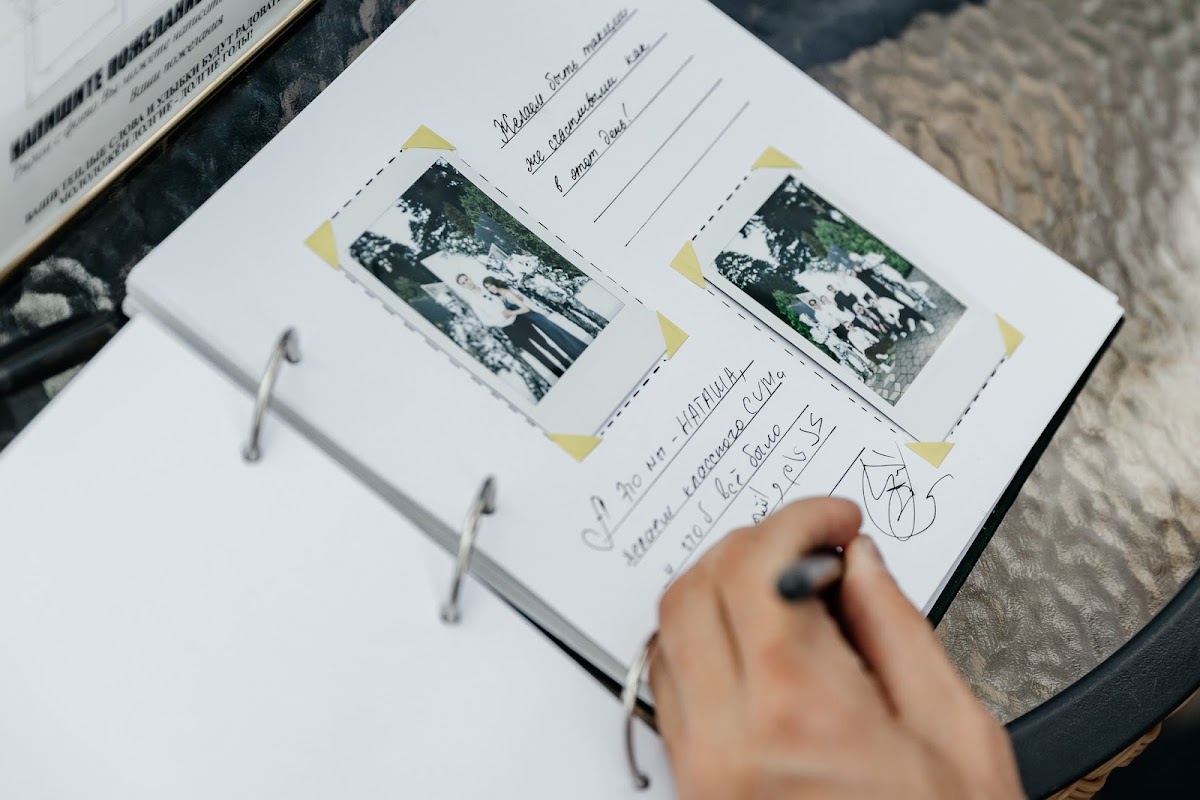 НАПИШИТЕ ПОЖЕЛАНИЕ
Рядом с фото Вы можете написать
Ваши пожелания
ВАШИ ТЕПЛЫЕ СЛОВА И УЛЫБКИ БУДУТ РАДОВАТЬ
МОЛОДОЖЕН ДОЛГИЕ - ДОЛГИЕ ГОДЫ!
Желаем быть такими
же счастливыми как
в этот день!
А это мп - НАТАША,
желаем классного
и чтоб всё было